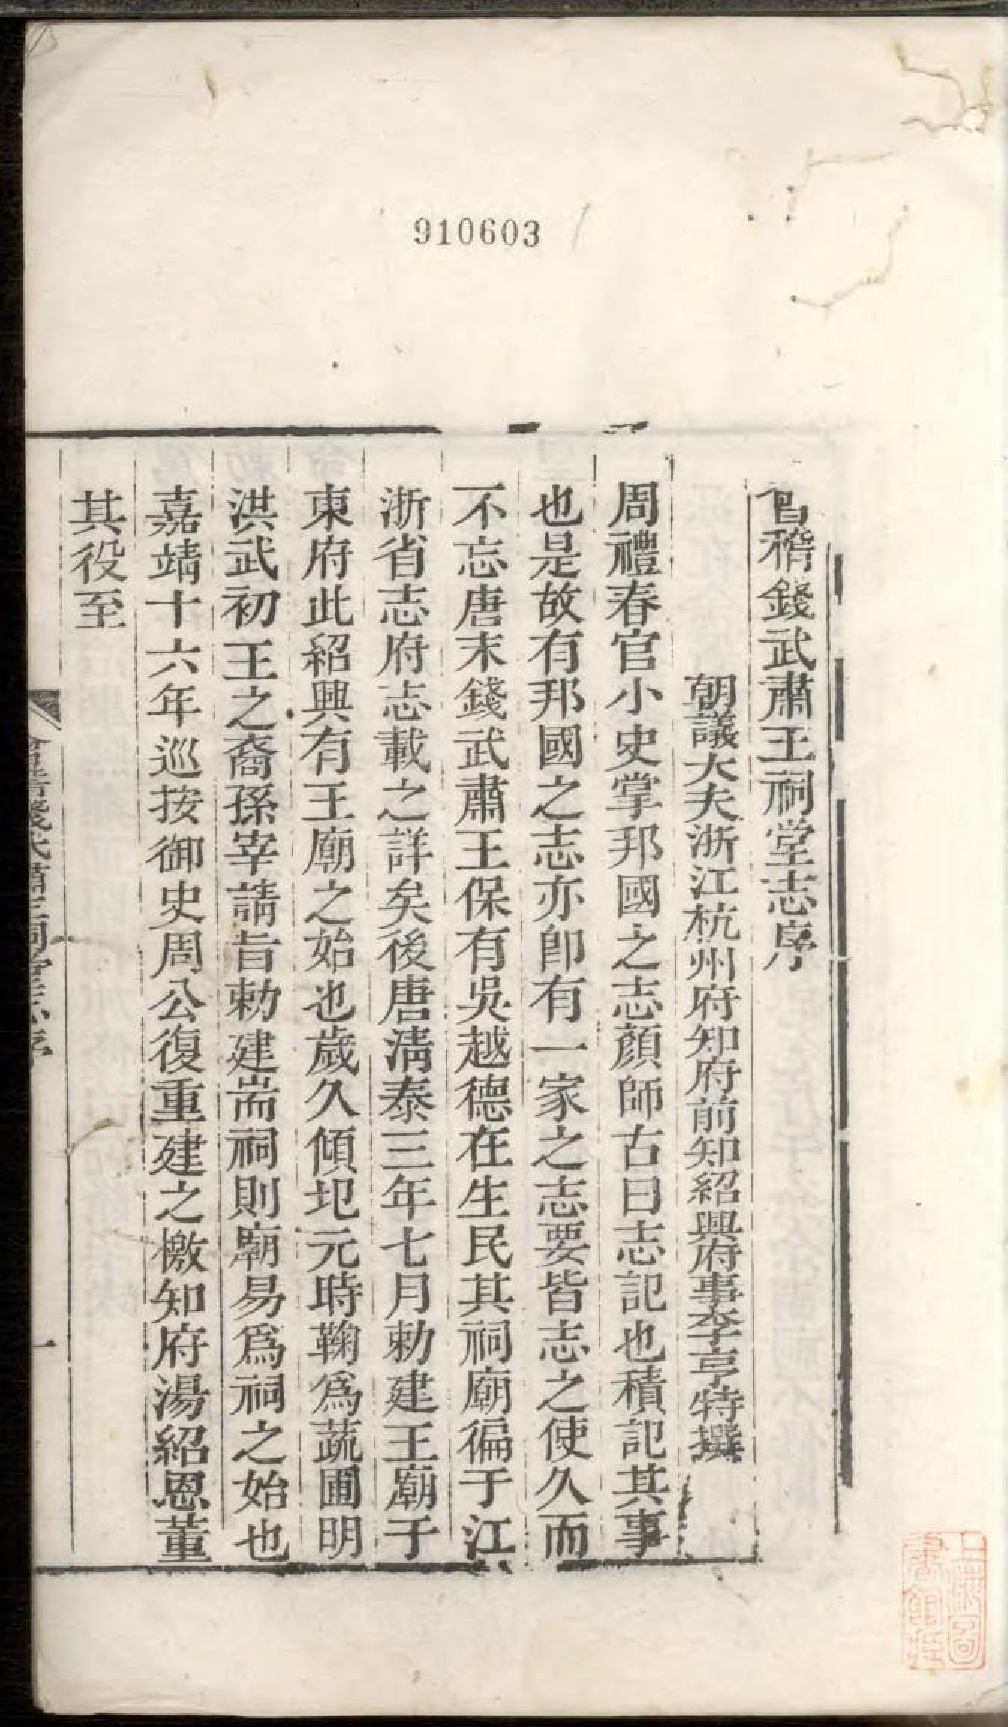 910603
會稽錢武肅王祠堂志序
朝議大夫浙江杭州府知府前知紹興府事李亨特撰
周禮春官小史掌邦國之志顏師古曰志記也積記其事
也是故有邦國之志亦卽有一家之志要皆志之使久而
不忘唐末錢武肅王保有吳越德在生民其祠廟徧于江
浙省志府志載之詳矣後唐淸泰三年七月勅建王廟于
東府此紹興有王廟之始也歲久傾圯元時鞠爲蔬圃明
洪武初王之裔孫宰請旨勅建耑祠則廟易爲祠之始也
嘉靖十六年巡按御史周公復重建之檄知府湯紹恩董
其役至
會稽錢武肅王祠堂志序
一
上海圖
書館藏